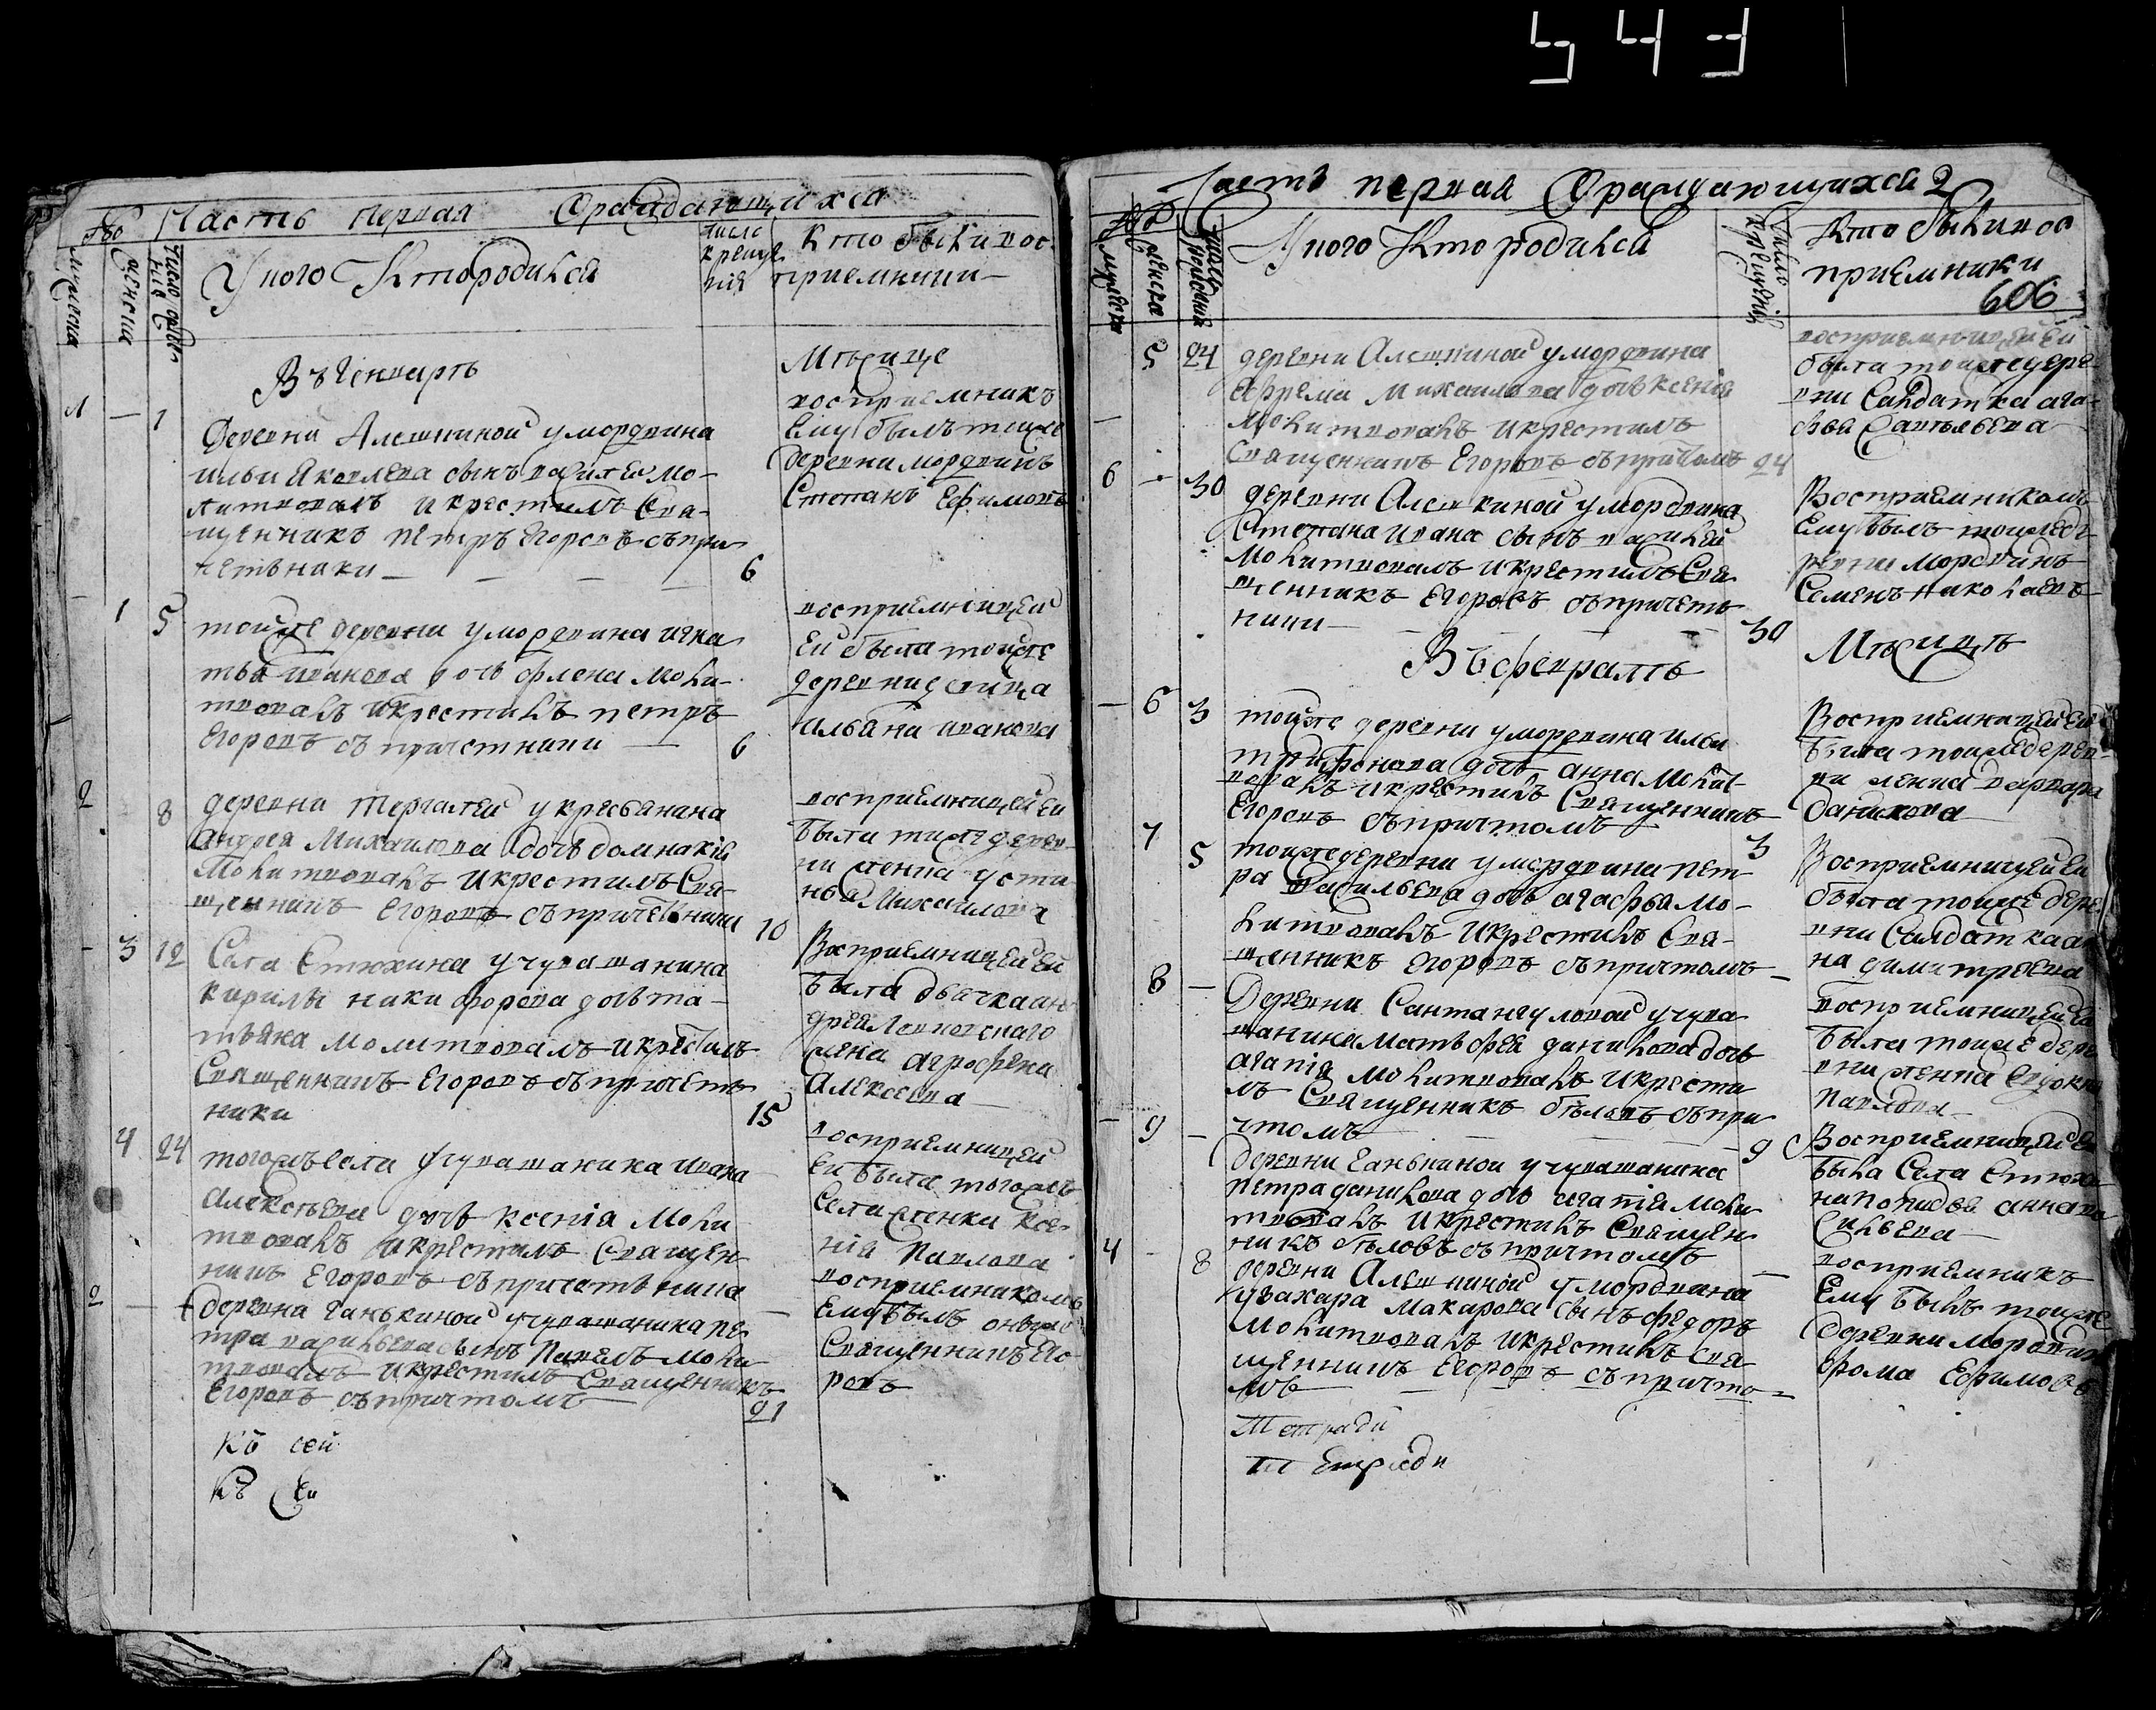 543
Часть первая Ораждающихся
№
мужеска
женска
Число рожде-
нія
У ково Кто родился
число
креще
нія
Кто были вос-
приемники
Въ Генваре
Месяце
1 — 1
Деревни Алешкиной у мордвина
ильи Яковлева сынъ василей мо-
литвовалъ и крестилъ Свя-
щенникъ петръ Егоровъ съ при
четьники — 6
восприемникъ
Ему былъ тоиже
деревни мордвинъ
Степанъ Ефимовъ
1 5
тойже деревни у мордвина игна
тья иванова дочь елена моли-
твовалъ и крестилъ петръ
Егоровъ съ причетники — 6
восприемницей
ей была тойже
деревни девица
ульяна иванова
2 8
деревни Тергалей у кресьянина
андрея Михаилова дочь домнакія
Молитвовалъ и крестилъ Свя-
щенникъ Егоровъ съ причетники 10
восприемницей ей
была тиже дерев
ни женка усти
нья Михаилова
3 12
Села Стюхина у чувашанина
кирилы никифорова дочь та-
тьяна молитвовалъ и крестилъ
Священникъ Егоровъ съ причеть
ники 15
Восприемницей ей
была дьячка ан
дрея
жена агрофена
Алексеева
4 24
тогожъ села у чувашанина ивана
алексеева дочь ксенія Моли
твовалъ и крестилъ Священ-
никъ Егоровъ съ причетьники
восприемницей
ей была тогожъ
села женка ксе-
нія павлова
2 —
деревни Ганькиной у чувашанина пе
тра васильева сынъ Павелъ моли
твовалъ и крестилъ Священникъ
Егоровъ съ причтомъ 21
восприемникомъ
Ему былъ оныже
Священникъ Его-
ровъ
Къ сей
Къ сей
Часть первая Ораждающихся 2
№
мужеска
женска
число рождения
У ково Кто родился
Число крещения
Кто были вос
приемники
606
5 24
деревни Алешкиной у мордвина
Ефрема Михаилова дочь ксения
Молитвовалъ и крестилъ
Священникъ Егоровъ съ притомъ 24
восприемницей ей
была тойже дере
вни Салдатка ага-
фья Савельева
6 — 30
деревни Алешкиной у мордвина
Степана ивана сынъ василей
Молитвовалъ и крестилъ Свя
щенникъ Егоровъ съ причеть
ники — 30
Восприемникомъ
Ему былъ тоиже де
ревни мордвинъ
Семенъ николаевъ
Въ феврале
Месяце
— 6 3
тойже деревни у мордвина ильи
трифонова дочь анна Молит-
вовалъ и крестилъ Священникъ
Егоровъ съ причтомъ 3
Восприемницей ей
была тоиже дерев-
ни женка варвара
данилова
7 5
тоиже деревни у мордвина пет-
ра васильева дочь агафья мо-
литвовалъ и крестилъ Свя-
щенникъ Егоровъ съ причтомъ —
Восприемницей ей
была тоиже дере
вни Салдатка ан
на димитреева
8 —
Деревни Сантангуловой у чува
шанина Матьфея данилова дочь
агапія Молитвовалъ и крести
лъ Священникъ беловъ съ при
чтомъ — 9
восприемницей ей
была тоиже дере
вни женка Евдокия
павлова
— 9 —
деревни Ганькиной у чувашанина
петра данилова дочь агапія моли
твовалъ и крестилъ Священ
никъ беловъ съ причтомъ —
Восприемницей ей
была Села Стюхи
на попадья анна ва
сильева
4 — 8
деревни Алешкиной у мордвина
захара макарова сынъ федоръ
Молитвовалъ и крестилъ Свя-
щенникъ Егоровъ съ причто-
мъ —
восприемникъ
Ему былъ тоиже
деревни мордвин
фома Ефимовъ
Тетради
Тетради